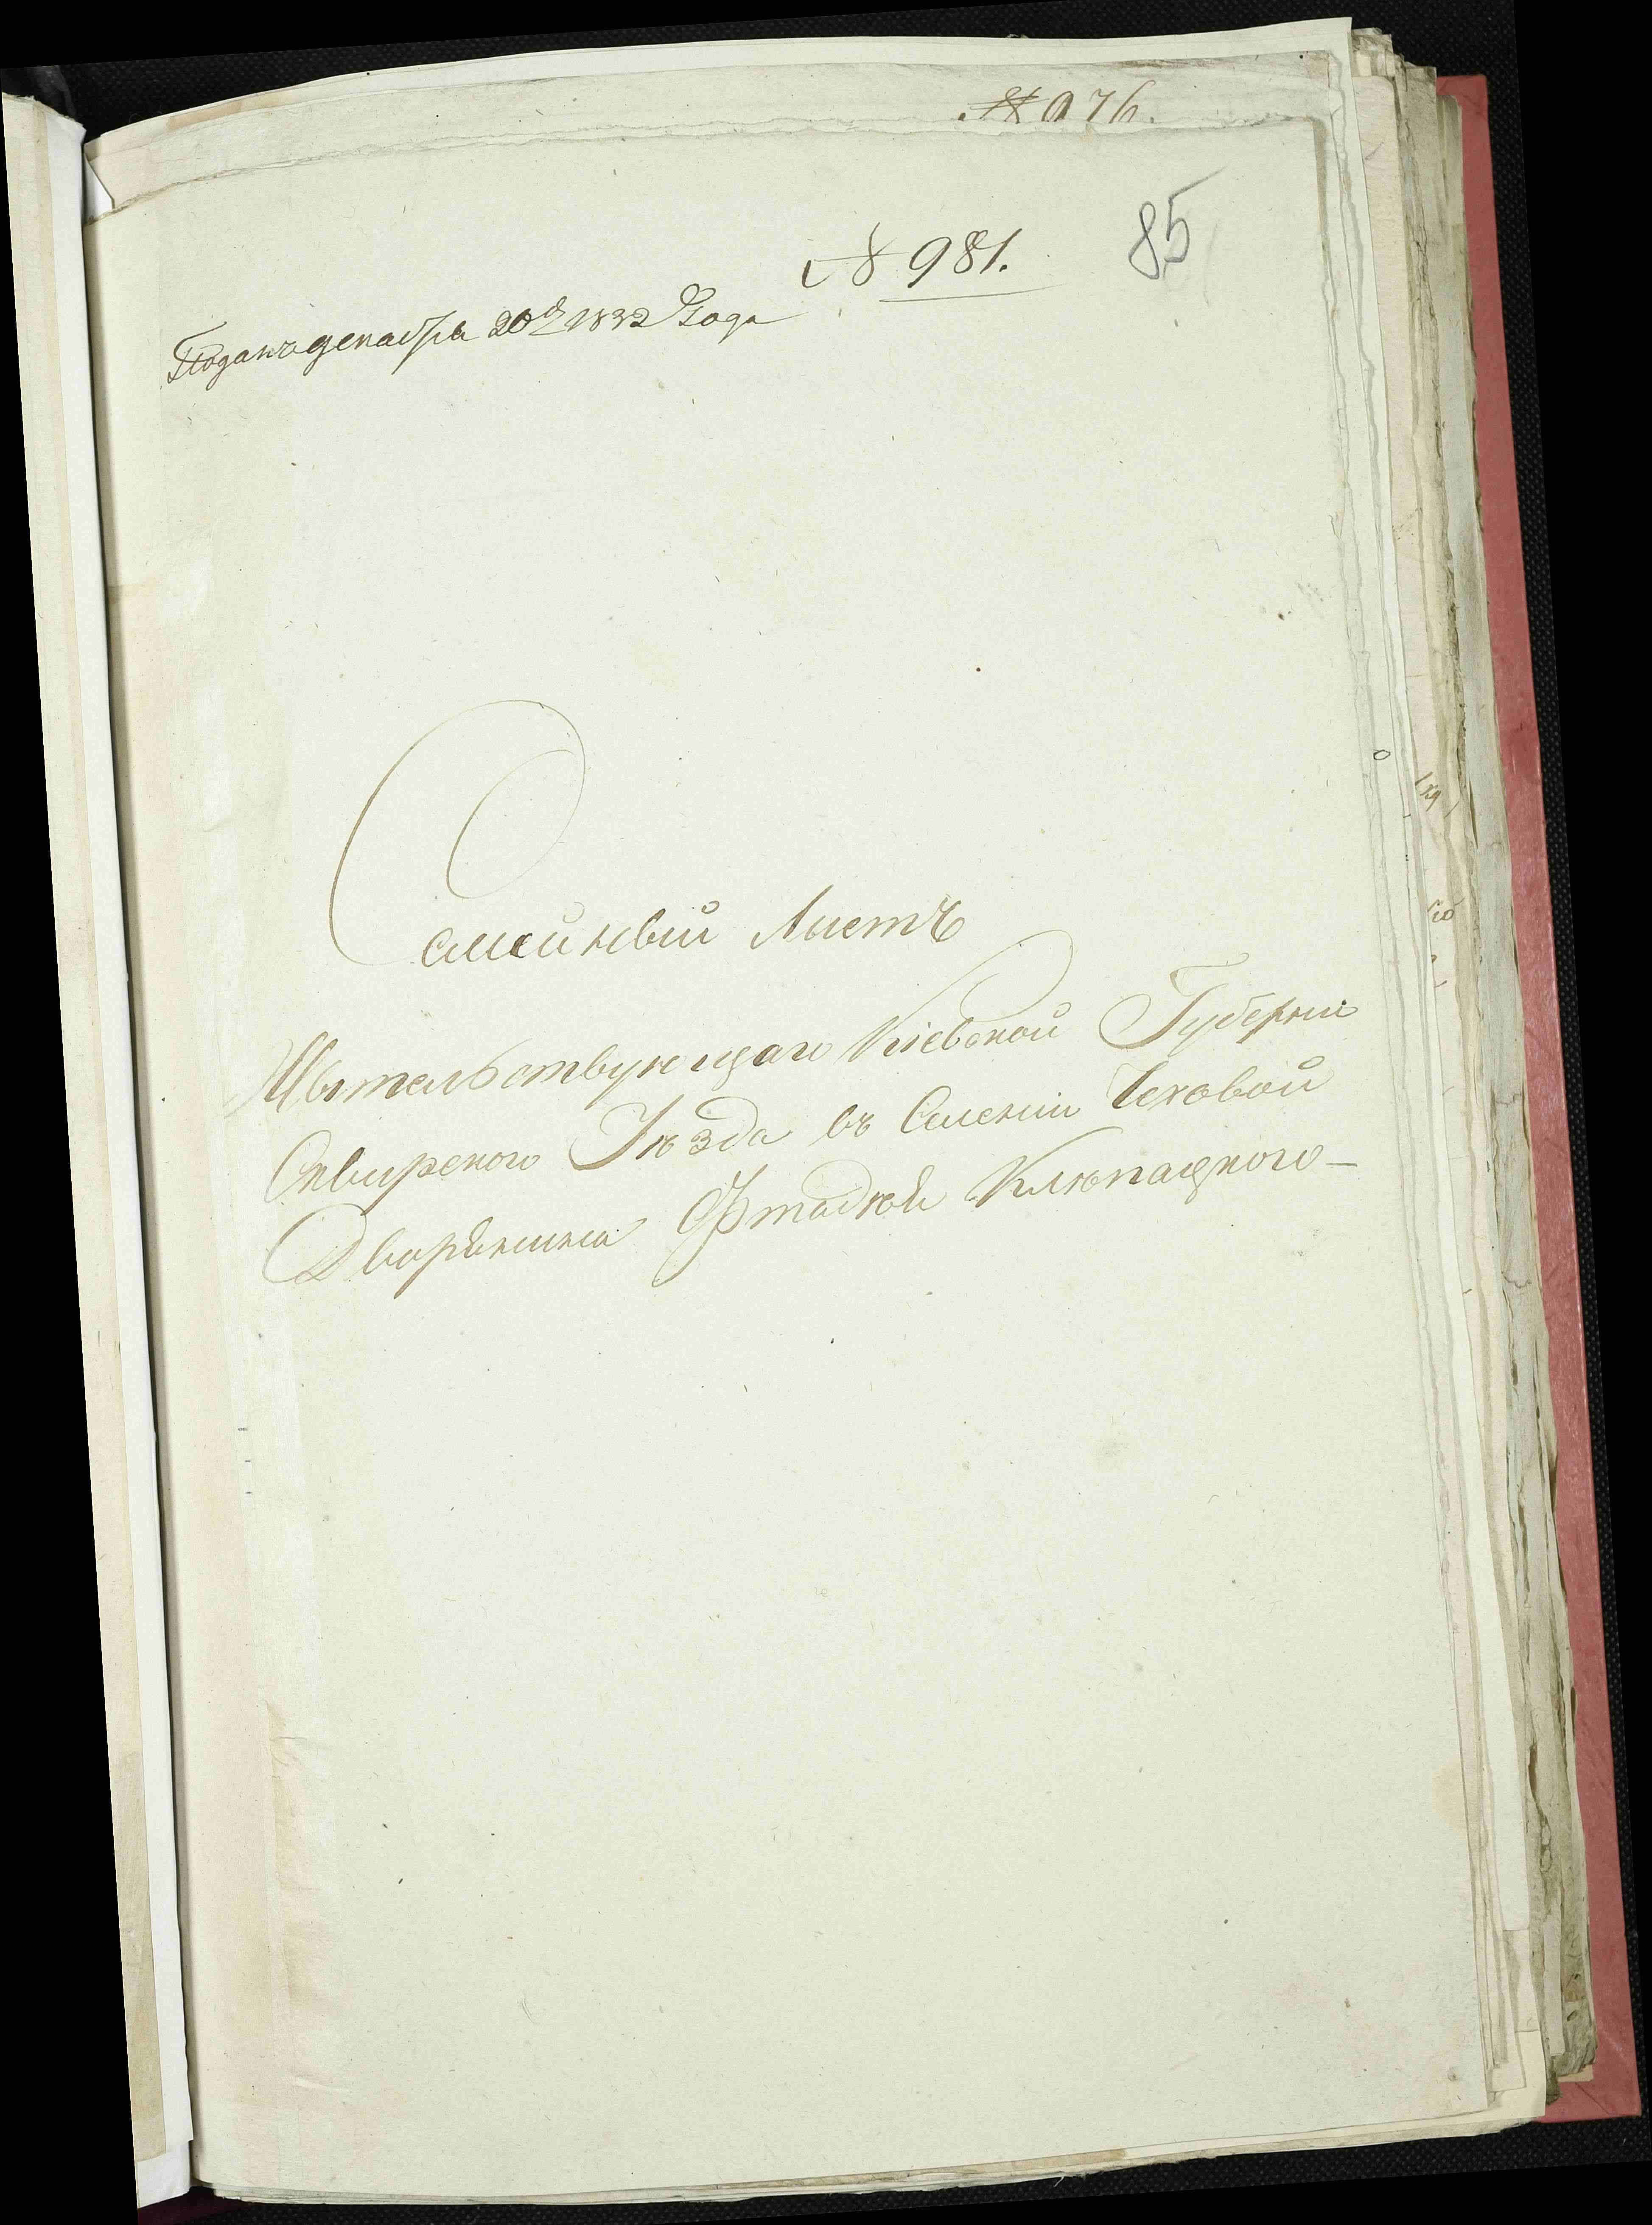 № 976.
№ 981.
85
Поданъ декабря 20д 1832 Года
Семейный Листъ
Жытельствующаго Кіевской Губерніи
Сквирского Уѣзда въ Селеніи Чеховой
Дворянина Фтадѣя Клюпацкого